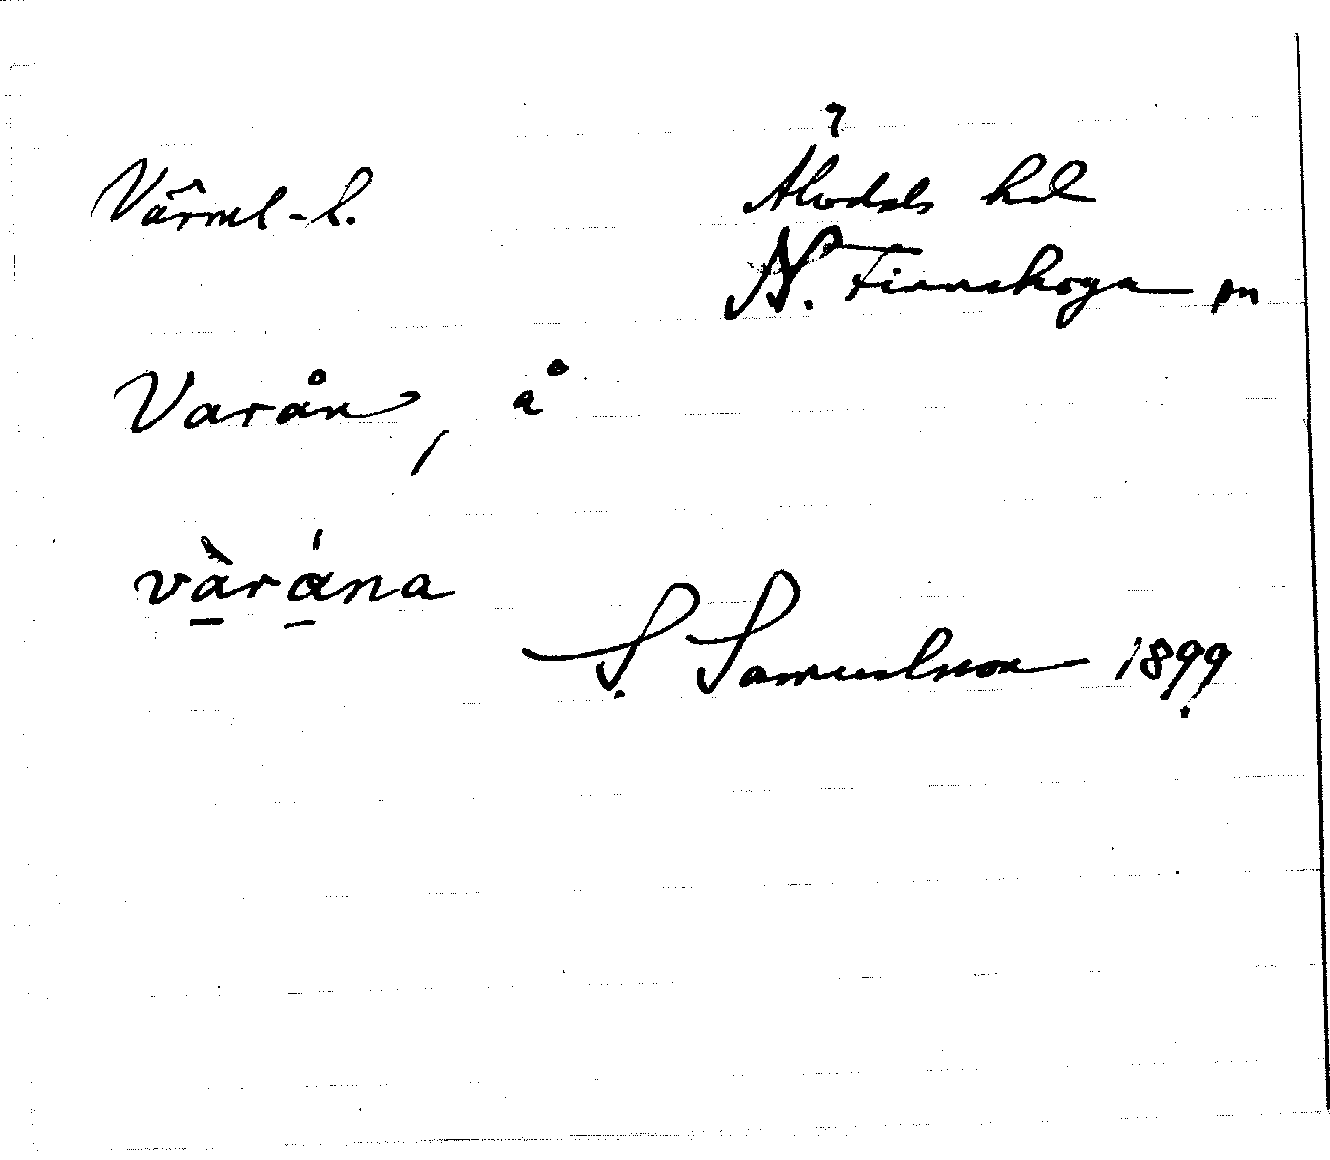 Värml-l.
Älvdals hd
N. Finnskoga sn
Varån, å
vàrána
S. Samuelsson 1899